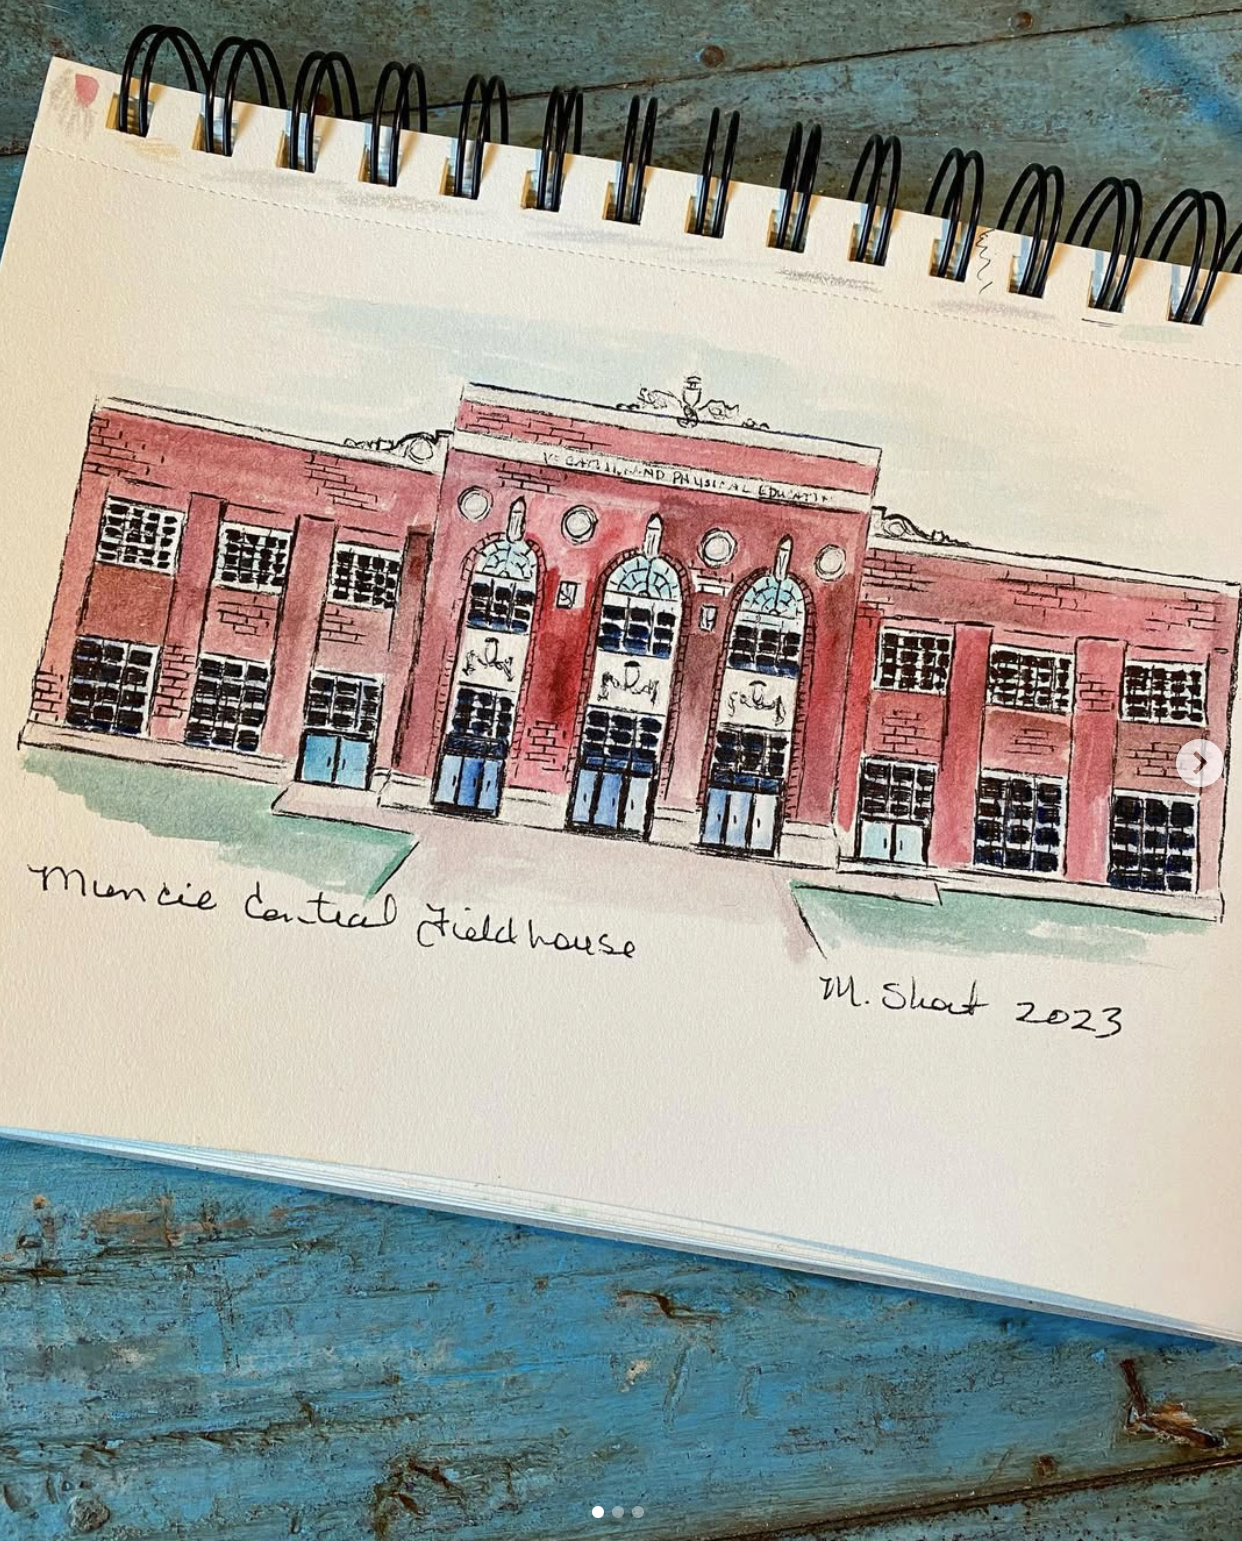 AND PHYSICAL EDUCATION
Muncie Central Fieldhouse
M. Shout 2023